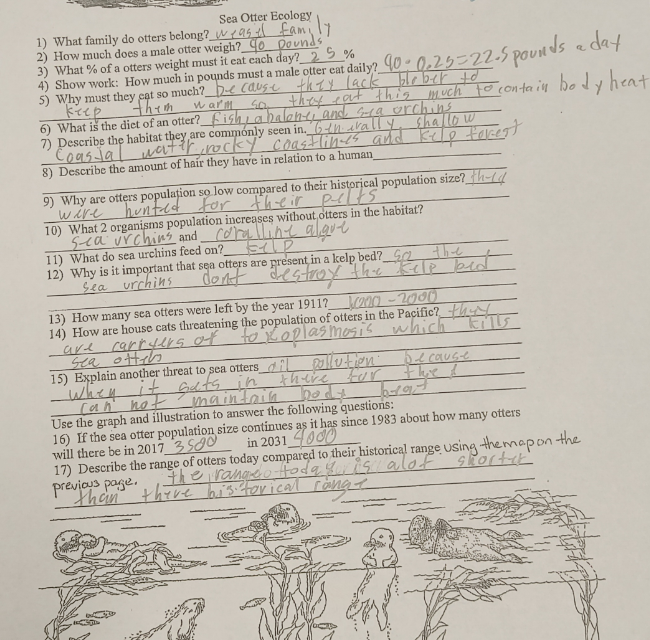 Sea Otter Ecology
1) What family do otters belong? weasel family
2) How much does a male otter weigh? 90 pounds
3) What % of a otters weight must it eat each day? 25 %
4) Show work: How much in pounds must a male otter eat daily? 90 · 0.25=22.5 pounds a day
5) Why must they eat so much? because they lack bleber to
keep them warm so they eat this much to contain body heat
6) What is the diet of an otter? Fish, abalone, and sea orchins
7) Describe the habitat they are commonly seen in. Generally shallow
Coastal water, rocky coastlines and kelp forest
8) Describe the amount of hair they have in relation to a human
9) Why are otters population so low compared to their historical population size?
were hunted for their pelts
10) What 2 organisms population increases without otters in the habitat?
sea urchins and coralline algue
11) What do sea urchins feed on? kelp
12) Why is it important that sea otters are present in a kelp bed? so the
sea urchins dont destroy the kelp bed
13) How many sea otters were left by the year 1911? 1000-2000
14) How are house cats threatening the population of otters in the Pacific? they
are carryers of toxoplasmosis which kills
sea otters
15) Explain another threat to sea otters oil pollution because
when it gets in there fur they
can not maintain body heat
Use the graph and illustration to answer the following questions:
16) If the sea otter population size continues as it has since 1983 about how many otters
will there be in 2017 3500 in 2031 4000
17) Describe the range of otters today compared to their historical range using the map on the
previous page. the range today is alot shorter
than there historical range